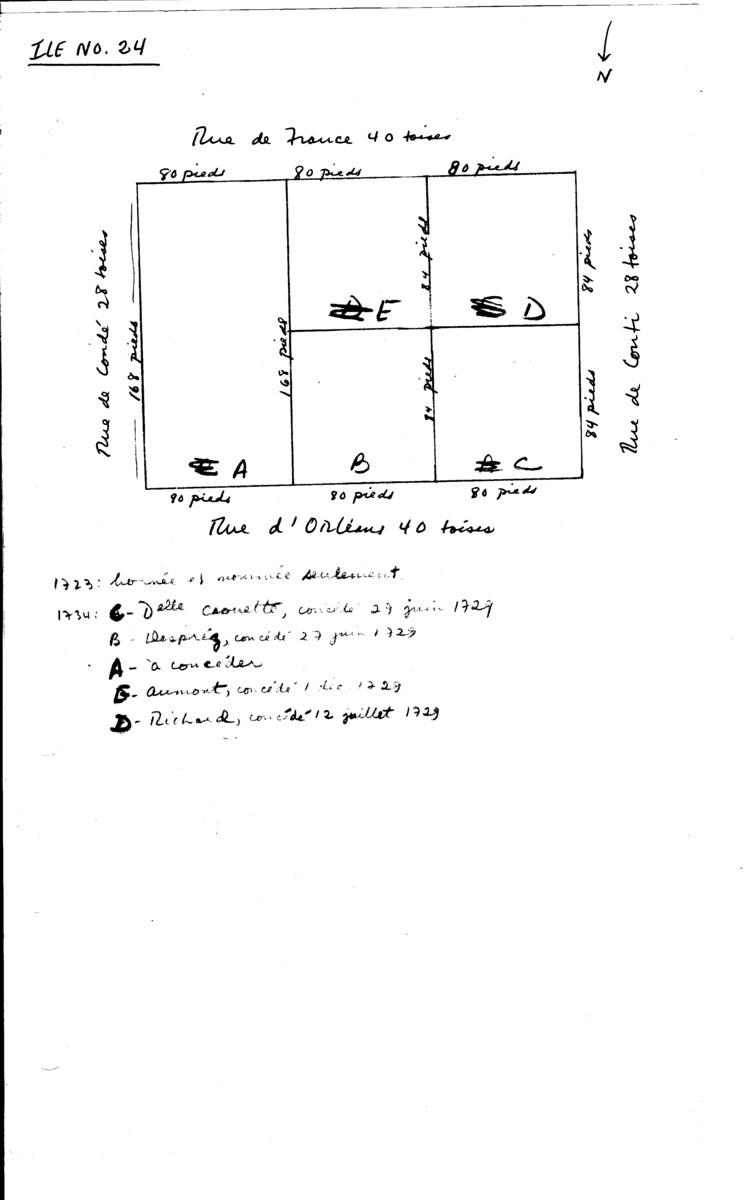 ILE NO. 24
N
Rue de France 40 toises
80 pieds
80 pieds
80 pieds
Rue de Condé 28 toises
168 pieds
168 pieds
84 pieds
84 pieds
84 pieds
84 pieds
Rue de Conti 28 toises
E
D
A
B
C
80 pieds
80 pieds
80 pieds
Rue d'Orléans 40 toises
1723: bornée et nommée seulement.
1734: C - Delle Caouette, concédé 29 juin 1729
B - Despréz, concédé 27 juin 1729
A - à concéder
E - Aumont, concédé 1 déc. 1729
D - Richard, concédé 12 juillet 1729